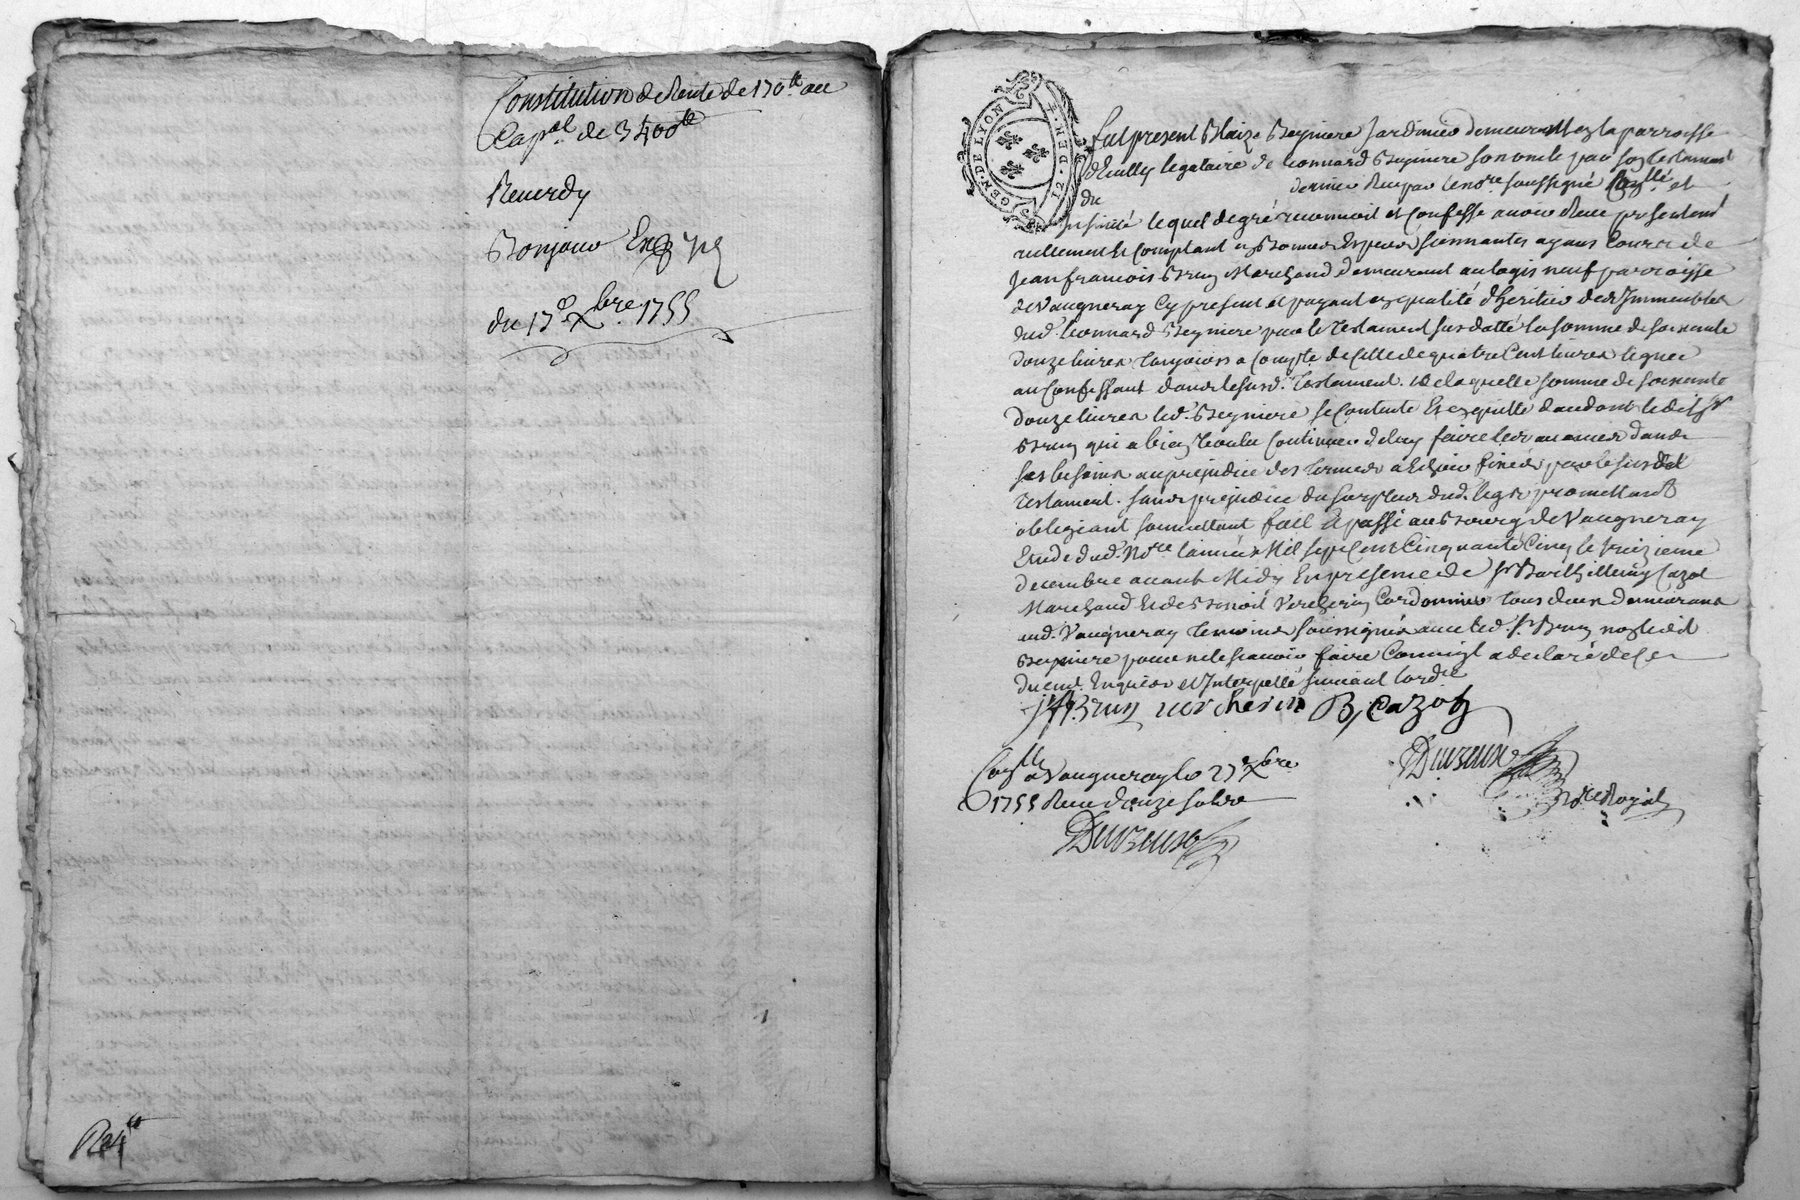 Constitution de Rente de 170tt au
Capal de 3400tt
Reverdy
Bonjour
du 13e Xbre 1755
GEN·DE LYON
12·DEN
fut present Blaize Beyniere Jardinier demeurant en la parroisse
d'Ecully legataire de Leonnard Beyniere son oncle par son testament
du dernier Recu par le nore soussigné Conllé et
Insinué lequel de gré reconnoit et Confesse avoir Receu presentemt
reellement Comptant en bonnes Especes sonnantes ayant Cours de
Jean francois Brun Marchand demeurant au logis neuf parroisse
de Vaugneray Cy present et payant en qualité d'Heritier des Immeubles
dud. Leonnard Beyniere par le testament susdatté la somme de soixante
douze livres a Compte de Celle de quatre Cent livres leguée
au Confessant dans le susd. testament. De laquelle somme de soixante
douze livres led. Beyniere se Contente Et en quitte ledit Sr
Brun qui a bien voulu Continuer de luy faire les avances dans
ses besoins au prejudice des termes a Echoir fixés par le susdit
testament. sans prejudice du surplus dud. legs promettant
obligeant soumettant fait et passé au Bourg de Vaugneray
Etude dud. Nore l'année Mil sept Cent Cinquante Cinq le treizieme
decembre avant Midy En presence de sr Barthellemy Cazot
Marchand Et de Benoit Vercherin Cordonnier tous deux demeurans
aud. Vaugneray temoins soussignés avec led. sr Brun non ledit
Beyniere pour ne le scavoir faire Comme il a declaré de Ce
duemt Enquis et Interpellé suivant l'ordce
jf Brun vercherin B, Cazot
Conllé a Vaugneray le 23 Xbre
1755 Receu douze sols
Nore Royal